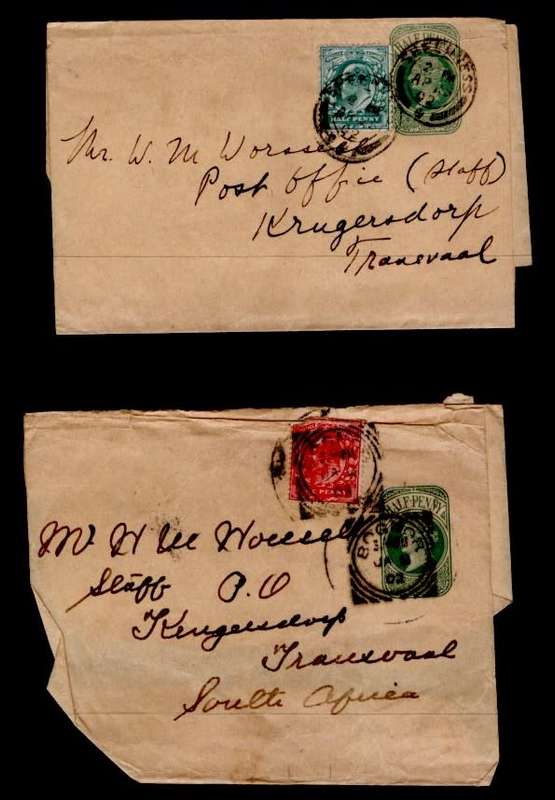 HALF PENNY
SKEGNESS
AP
02
HALF PENNY
Mr. W. M Worssell
Post Office (Staff)
Krugersdorp
Transvaal
PENNY
HALF-PENNY
BOGNOR
02
Mr W M Worssell
Staff P.O
Krugersdorp
Transvaal
South Africa